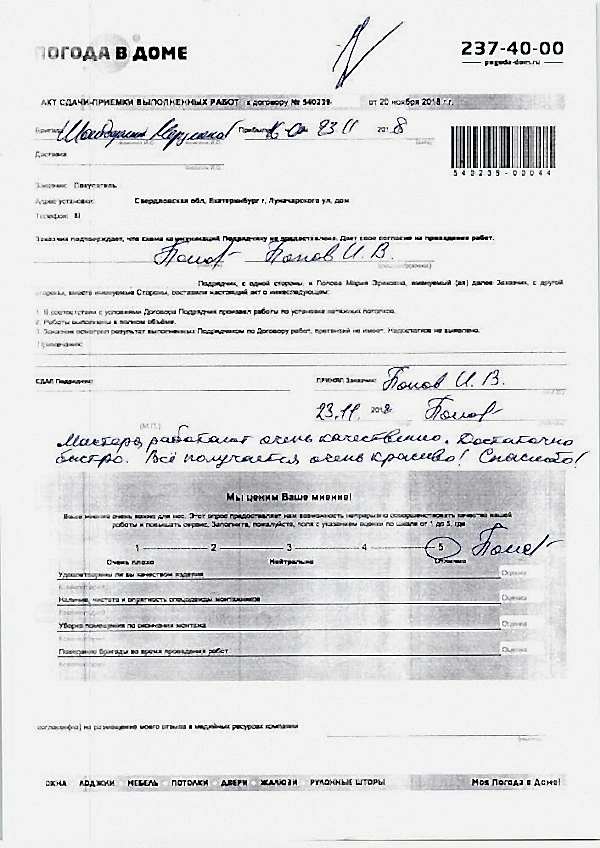 ПОГОДА В ДОМЕ
237-40-00
pogoda-dom.ru
АКТ СДАЧИ-ПРИЕМКИ ВЫПОЛНЕННЫХ РАБОТ к договору № 540239 от 20 ноября 2018 г.г.
Бригада Прибыли 23 11 2018
540239-00044
Доставка
Заказчик: Покупатель
Адрес установки: Свердловская обл, Екатеринбург г, Луначарского ул, дом
Телефон:
Заказчик подтверждает, что схема коммуникаций Подрядчику не предоставлена. Дает свое согласие на проведение работ.
Попов Попов И. В.
Подрядчик, с одной стороны, и Попова Мария Эриковна, именуемый (ая) далее Заказчик, с другой
стороны, вместе именуемые Стороны, составили настоящий акт о нижеследующем:
1. В соответствии с условиями Договора Подрядчик произвел работы по установке натяжных потолков.
2. Работы выполнены в полном объёме.
3. Заказчик осмотрел результат выполненных Подрядчиком по Договору работ, претензий не имеет. Недостатков не выявлено.
Примечания:
СДАЛ Подрядчик: ПРИНЯЛ Заказчик: Попов И. В.
23.11. 2018 Попов
(М.П.)
Мастера работают очень качественно. Достаточно
быстро. Всё получается очень красиво! Спасибо!
Мы ценим Ваше мнение!
Ваше мнение очень важно для нас. Этот опрос предоставляет нам возможность непрерывно совершенствовать качество нашей
работы и повышать сервис. Заполните, пожалуйста, поля с указанием оценки по шкале от 1 до 5, где
1 2 3 4 5 Попов
Очень плохо Нейтрально Отлично
Удовлетворены ли вы качеством изделия Оценка
Комментарий:
Наличие, чистота и опрятность спецодежды монтажников Оценка
Комментарий:
Уборка помещения по окончании монтажа Оценка
Комментарий:
Поведение бригады во время проведения работ Оценка
Комментарий:
согласен(на) на размещение моего отзыва в медийных ресурсах компании
ОКНА ЛОДЖИИ МЕБЕЛЬ ПОТОЛКИ ДВЕРИ ЖАЛЮЗИ РУЛОННЫЕ ШТОРЫ Моя Погода в Доме!